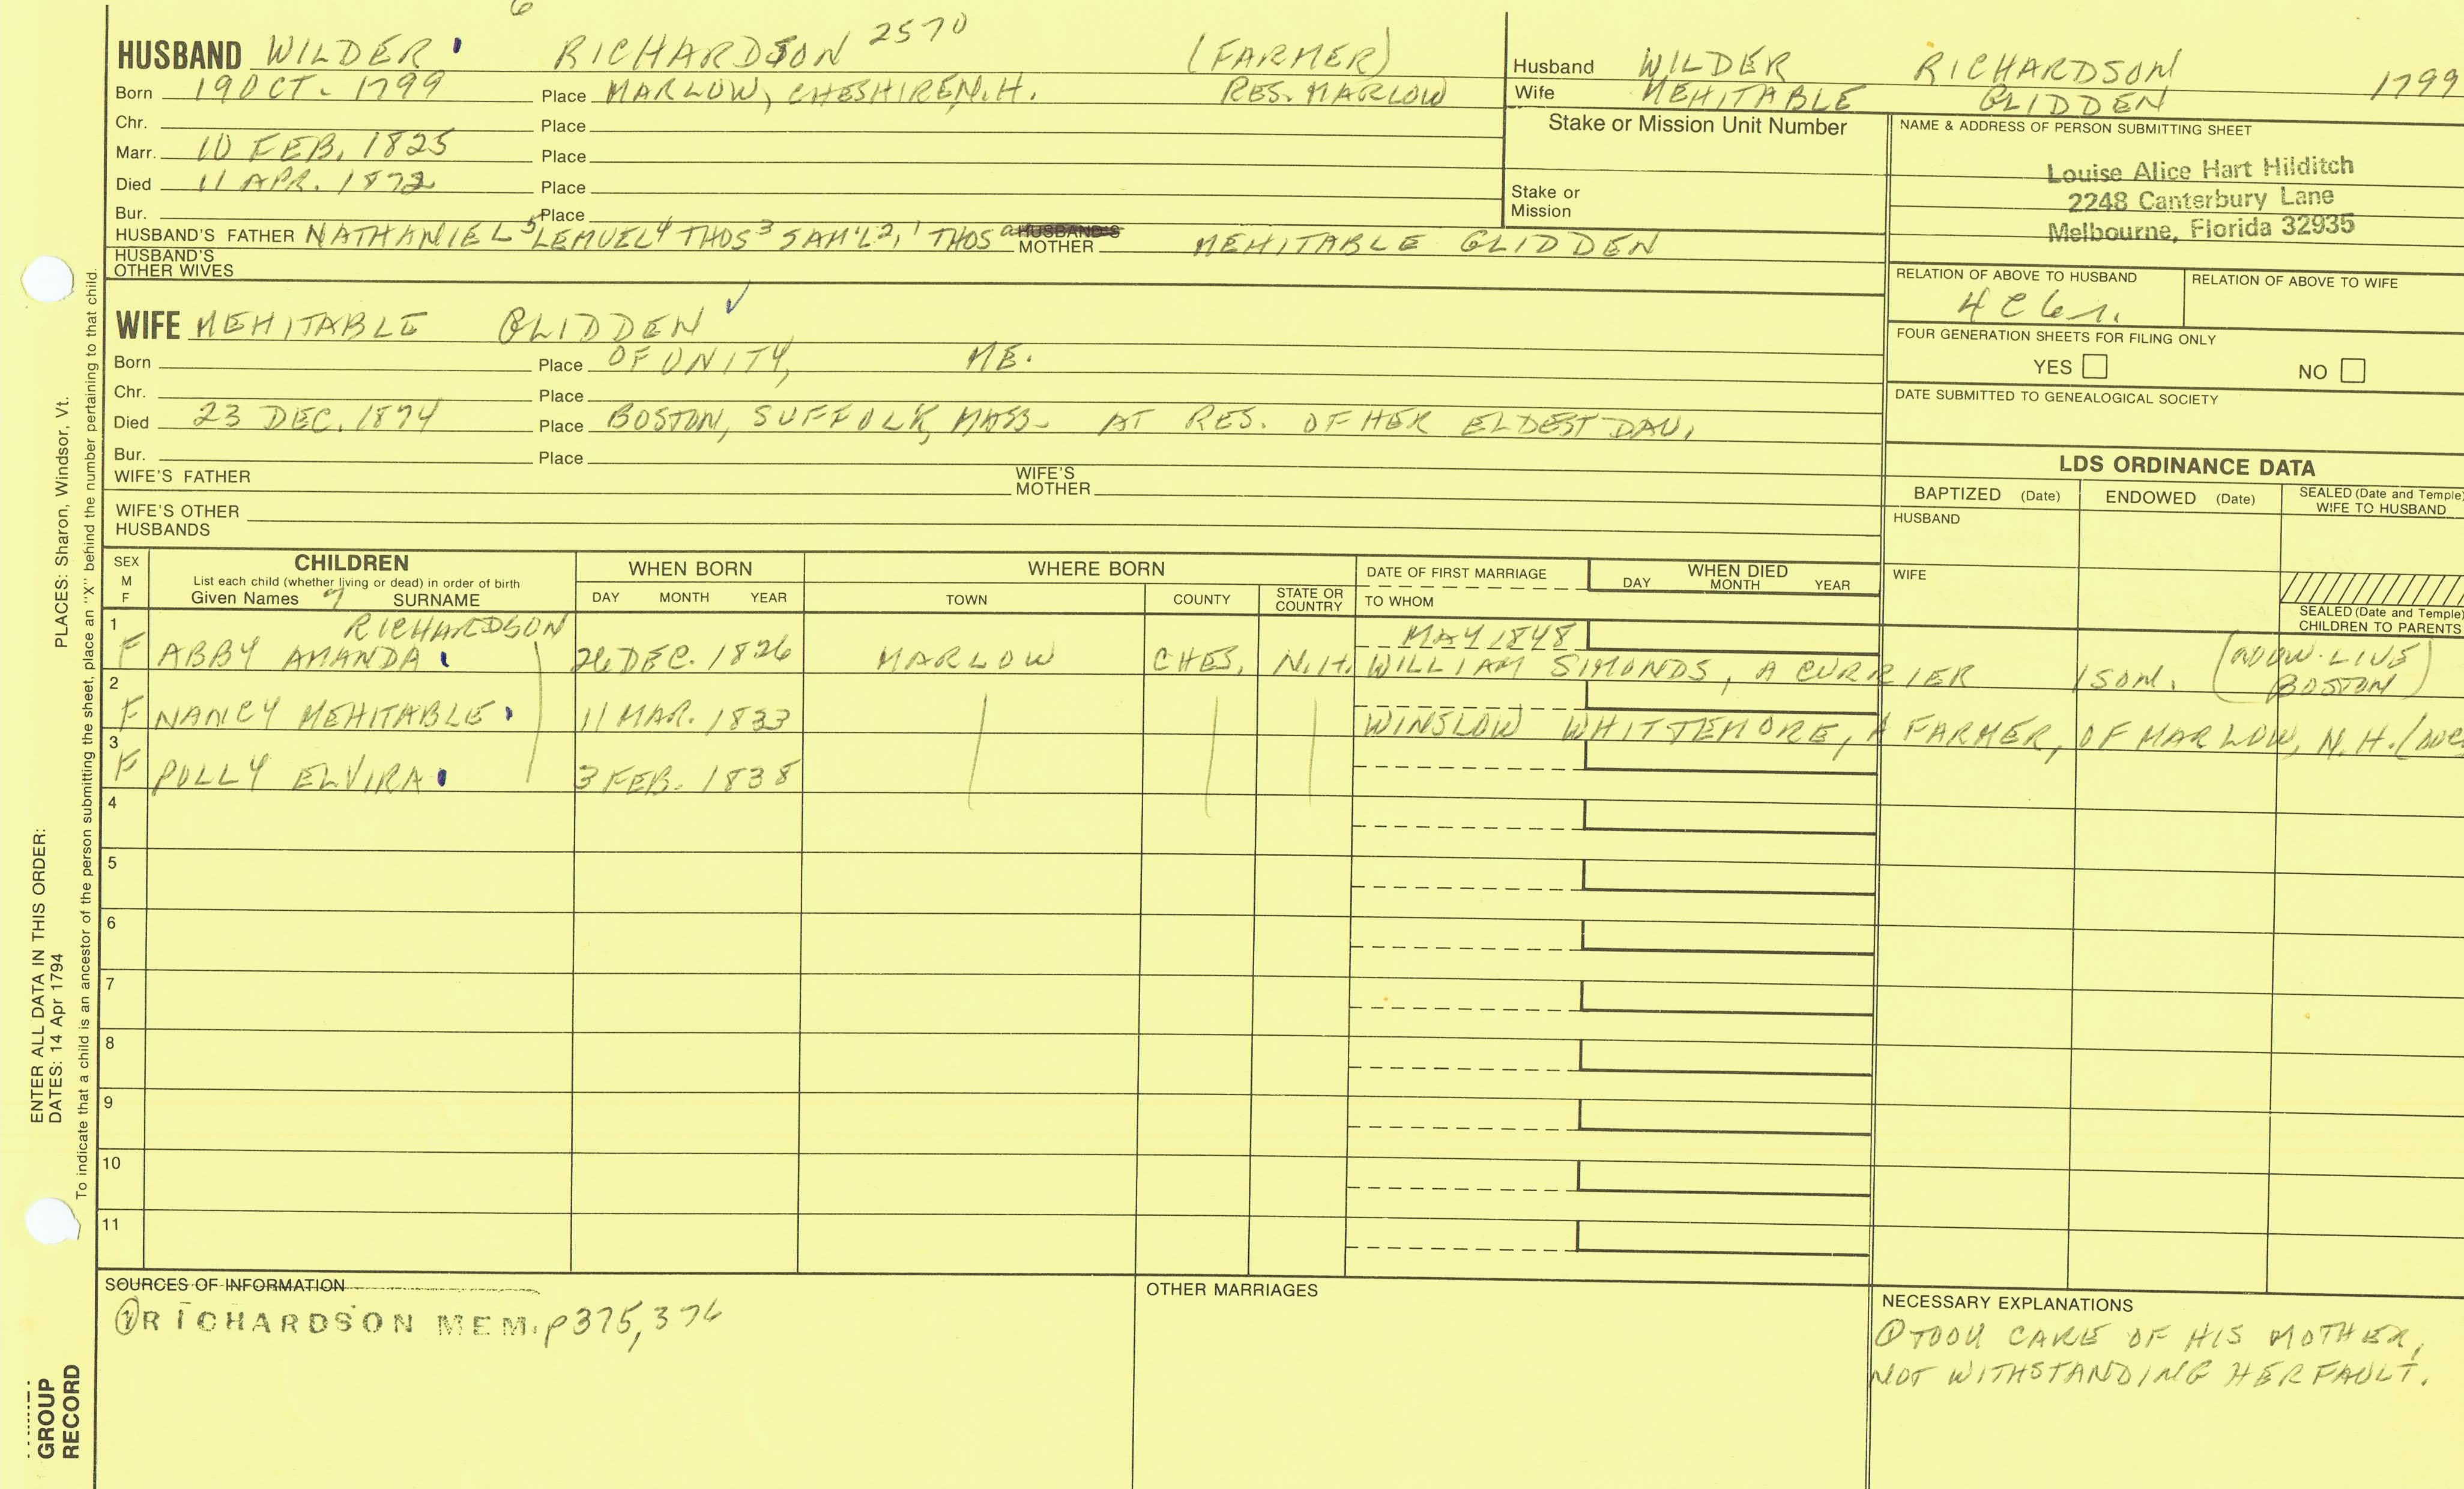 6
HUSBAND WILDER RICHARDSON 2570 (FARMER)
Born 19 OCT. 1799 Place MARLOW, CHESHIRE, N.H. RES. MARLOW
Chr. Place
Marr. 10 FEB. 1825 Place
Died 11 APR. 1872 Place
Bur. Place
HUSBAND'S FATHER NATHANIEL 5 LEMUEL 4 THOS 3 SAM'L 2, 1 THOS a HUSBAND'S MOTHER MEHITABLE GLIDDEN
HUSBAND'S
OTHER WIVES
WIFE MEHITABLE GLIDDEN ✓
Born Place OF UNITY, ME.
Chr. Place
Died 23 DEC. 1874 Place BOSTON, SUFFOLK, MASS. AT RES. OF HER ELDEST DAU.
Bur. Place
WIFE'S FATHER WIFE'S MOTHER
WIFE'S OTHER
HUSBANDS
Husband WILDER RICHARDSON 1799
Wife MEHITABLE GLIDDEN
Stake or Mission Unit Number
Stake or
Mission
NAME & ADDRESS OF PERSON SUBMITTING SHEET
Louise Alice Hart Hilditch
2248 Canterbury Lane
Melbourne, Florida 32935
RELATION OF ABOVE TO HUSBAND RELATION OF ABOVE TO WIFE
4 C 6 r.
FOUR GENERATION SHEETS FOR FILING ONLY
YES NO
DATE SUBMITTED TO GENEALOGICAL SOCIETY
LDS ORDINANCE DATA
BAPTIZED (Date) ENDOWED (Date) SEALED (Date and Temple)
WIFE TO HUSBAND
HUSBAND
WIFE
SEALED (Date and Temple)
CHILDREN TO PARENTS
SEX
M
F
CHILDREN
List each child (whether living or dead) in order of birth
Given Names 7 SURNAME
WHEN BORN
DAY MONTH YEAR
WHERE BORN
TOWN COUNTY STATE OR COUNTRY
DATE OF FIRST MARRIAGE
TO WHOM
WHEN DIED
DAY MONTH YEAR
1 RICHARDSON MAY 1848
F ABBY AMANDA 26 DEC. 1826 MARLOW CHES. N.H. WILLIAM SIMONDS, A CURRIER 1 SON. (NOW LIVE BOSTON)
2
F NANCY MEHITABLE 11 MAR. 1833 WINSLOW WHITTEMORE, A FARMER, OF MARLOW, N.H.
3
F POLLY ELVIRA 3 FEB. 1838
4
5
6
7
8
9
10
11
SOURCES OF INFORMATION
① RICHARDSON MEM. p 375, 376
OTHER MARRIAGES
NECESSARY EXPLANATIONS
① TOOK CARE OF HIS MOTHER,
NOT WITHSTANDING HER FAULT.
PLACES: Sharon, Windsor, Vt.
ENTER ALL DATA IN THIS ORDER:
DATES: 14 Apr 1794
To indicate that a child is an ancestor of the person submitting the sheet, place an "X" behind the number pertaining to that child.
GROUP
RECORD